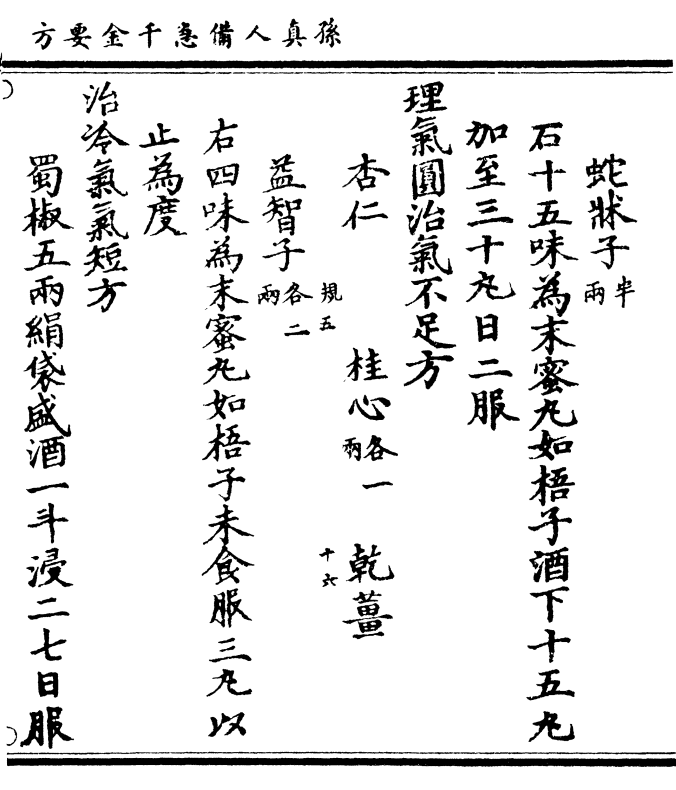 孫真人備急千金要方
蛇牀子半兩
石十五味為末蜜丸如梧子酒下十五丸
加至三十丸日二服
理氣圓治氣不足方
杏仁 桂心各一兩 乾薑
規五
十六
益智子各二兩
右四味為末蜜丸如梧子未食服三丸以
止為度
治冷氣氣短方
蜀椒五兩絹袋盛酒一斗浸二七日服